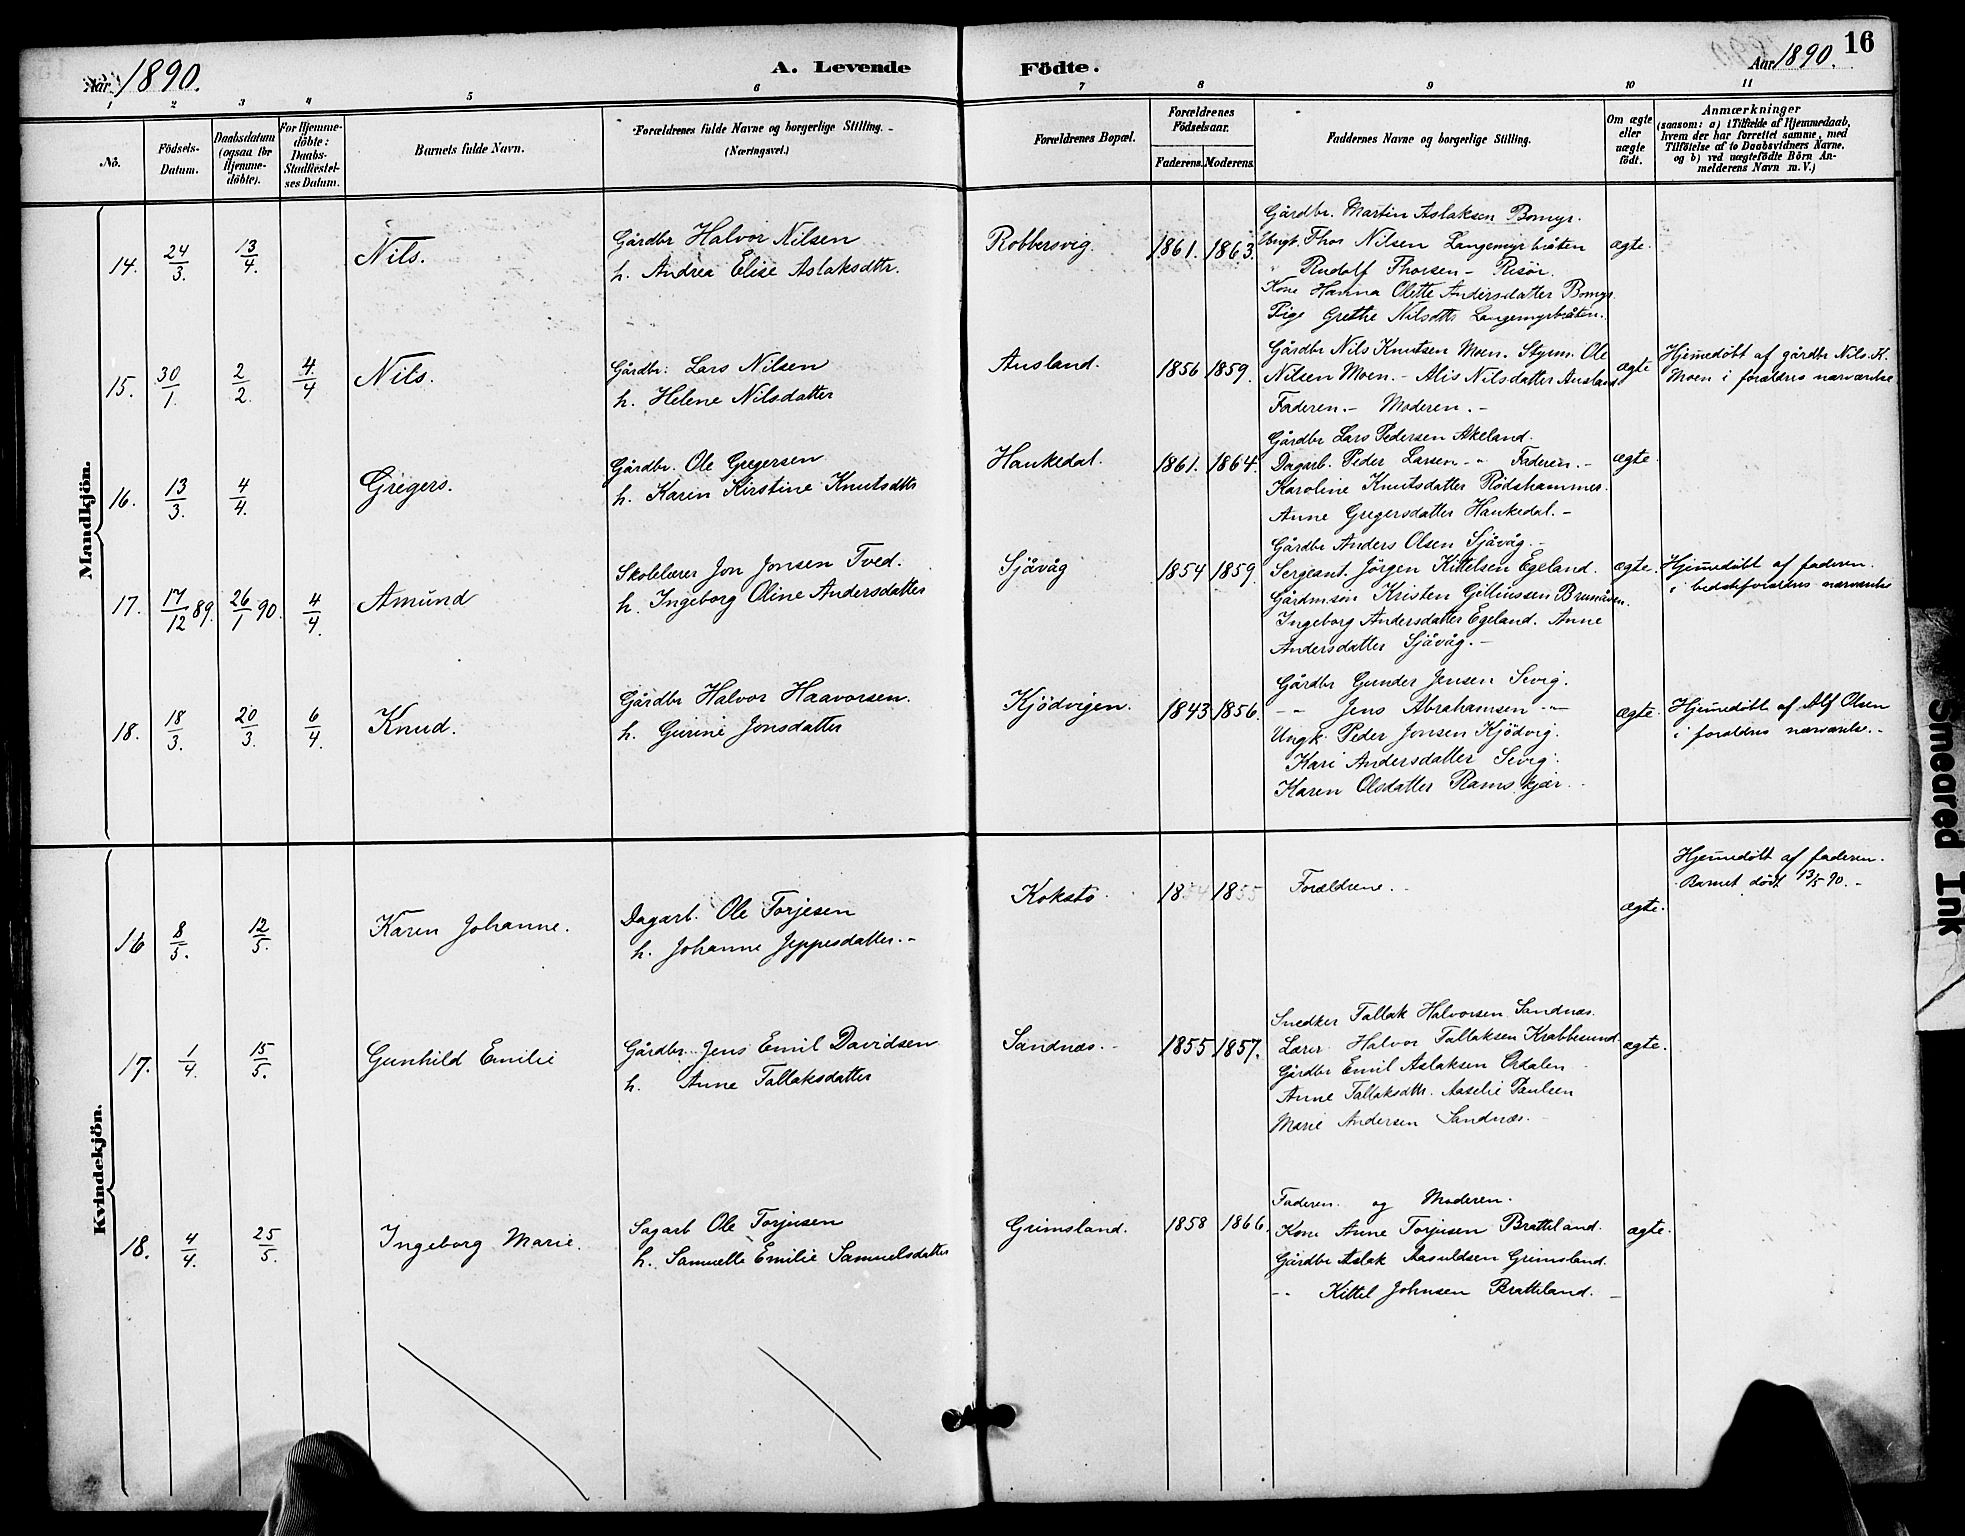 Aar 1890.
A. Levende Födte.
Aar 1890.
16
1 2 3 4 5 6 7 8 9 10 11
No.
Födsels-Datum.
Daabsdatum (ogsaa for Hjemme-döbte).
For Hjemme-döbte: Daabs-Stadfæstel-ses Datum.
Barnets fulde Navn.
Forældrenes fulde Navne og borgerlige Stilling. (Næringsvei.)
Forældrenes Bopæl.
Forældrenes Födselsaar.
Faderens. Moderens.
Faddernes Navne og borgerlige Stilling.
Om ægte eller uægte født.
Anmærkninger
(saasom: a) i Tilfælde af Hjemmedaab,
hvem der har forrettet samme, med
Tilföielse af to Daabsvidners Navne.
og b) ved uægtefödte Börn An-
melderens Navn m. V.)
Mandkjön.
14. 24/3. 13/4. Nils.
Gårdbr Halvor Nilsen
h. Andrea Elise Aslaksdtr.
Robbersvig. 1861. 1863.
Gårdbr. Martin Aslaksen Bomyr.
Ungk. Thor Nilsen Langemyrbråten
" Rudolf Thorsen - Risör.
Kone Hanna Olette Andersdatter Bomyr.
Pige Grethe Nilsdtr Langemyrbråten.
ægte.
15. 30/1. 2/2. 4/4 Nils.
Gårdbr: Lars Nilsen
h. Helene Nilsdatter
Ausland. 1856 1859.
Gårdbr Nils Knutsen Moen. Styrm. Ole
Nilsen Moen. - Alis Nilsdatter Ausland
Faderen. - Moderen. -
ægte
Hjemmedöbt af gårdbr Nils K.
Moen i forældres nærværelse
16. 13/3. 4/4. Gregers.
Gårdbr. Ole Gregersen
h. Karen Kirstine Knutsdtr
Haukedal. 1861. 1864.
Gårdbr Lars Pedersen Akeland.
Dagarb. Peder Larsen - " Faderen. -
Karoline Knutsdatter Rödshammer.
Anne Gregersdatter Haukedal. -
ægte.
17. 17/12 89. 26/1 90. 4/4. Amund
Skolelærer Jon Jonsen Tved.
h. Ingeborg Oline Andersdatter
Sjåvåg 1854 1859.
Gårdbr Anders Olsen Sjåvåg. -
Sergeant. Jörgen Kittelsen Egeland.
Gårdm.sön Kristen Gelliussen Brunåsen.
Ingeborg Andersdatter Egeland. Anne
Andersdatter Sjåvåg. -
ægte.
Hjemmedöbt af faderen.
i bedsteforældres nærværelse
18. 18/3. 20/3. 6/4. Knud.
Gårdbr Halvor Haavorsen.
h. Gurine Jonsdatter
Kjödvigen. 1843 1856.
Gårdbr Gunder Jensen Sivig.
- " - Jens Abrahamsen - " -
Ungk. Peder Jonsen Kjödvig.
Kari Andersdatter Sivig.
Karen Olsdatter Ramskjær. -
ægte.
Hjemmedöbt af Alf Olsen
i forældres nærværelse. -
Kvindekjön.
16 8/5. 12/5. Karen Johanne.
Dagarb. Ole Torjesen
h. Johanne Jeppesdatter. -
Koksto. 1854 1855
Forældrene. -
ægte.
Hjemmedöbt af faderen.
Barnet död 13/5 90. -
17. 1/4. 15/5. Gunhild Emilie
Gårdbr. Jens Emil Davidsen
h. Anne Tallaksdatter
Sandnæs. - 1855 1857.
Snedker Tallak Halvorsen Sandnæs.
Lærer Halvor Tallaksen Krabbesund
Gårdbr Emil Aslaksen Ordalen
Anne Tallaksdtr. Aaselie Paulsen
Marie Andersen Sandnæs. -
ægte.
18. 4/4. 25/5. Ingeborg Marie.
Sagarb Ole Torjusen
h. Samuelle Emilie Samuelsdatter
Grimsland. 1858 1866.
Faderen og Moderen.
Kone Anne Torjusen Bratteland.
Gårdbr Aslak Aasuldsen Grimsland.
- " Kittel Johnsen Bratteland. -
ægte.
Smeared Ink